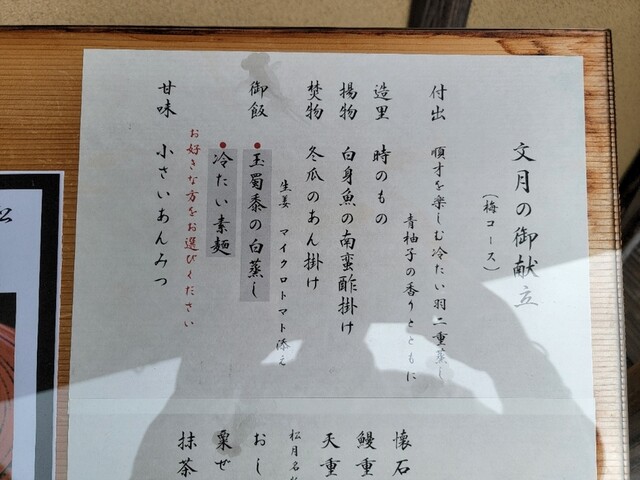 文月の御献立
(梅コース)
付出 順才を楽しむ冷たい羽二重蒸し
青柚子の香りとともに
造里 時のもの
揚物 白身魚の南蛮酢掛け
焚物 冬瓜のあん掛け
生姜 マイクロトマト添え
御飯 ●玉蜀黍の白蒸し
●冷たい素麺
お好きな方をお選びください
甘味 小さいあんみつ
懐石
鰻重
天重
松月名
おし
粟ぜ
抹茶
松